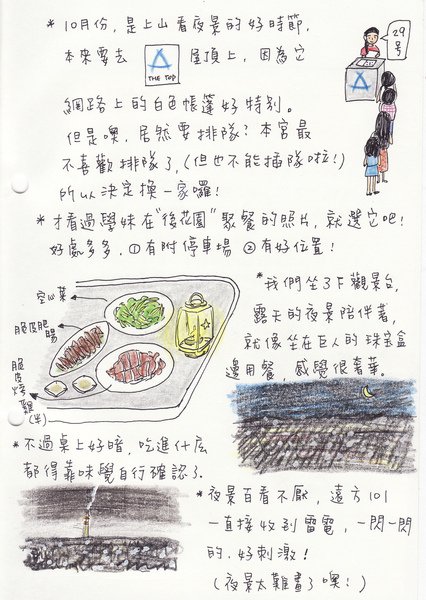 * 10月份，是上山看夜景的好時節，
29號
本來要去 THE TOP 屋頂上，因為它
網路上的白色帳篷好特別。
但是噢，居然要排隊？本宮最
不喜歡排隊了，(但也不能插隊啦!)
所以決定換一家囉！
* 才看過學妹在"後花園"聚餐的照片，就選它吧！
好處多多，①有附停車場 ②有好位置！
空心菜
脆皮肥腸
脆皮烤雞(半)
* 我們坐了下觀景台，
露天的夜景陪伴著，
就像坐在巨人的珠寶盒
邊用餐，感覺很奢華。
* 不過桌上好暗，吃進什麼
都得靠味覺自行確認了.
* 夜景百看不厭，遠方101
一直接收到雷電，一閃一閃
的，好刺激！
(夜景太難畫了噢！)